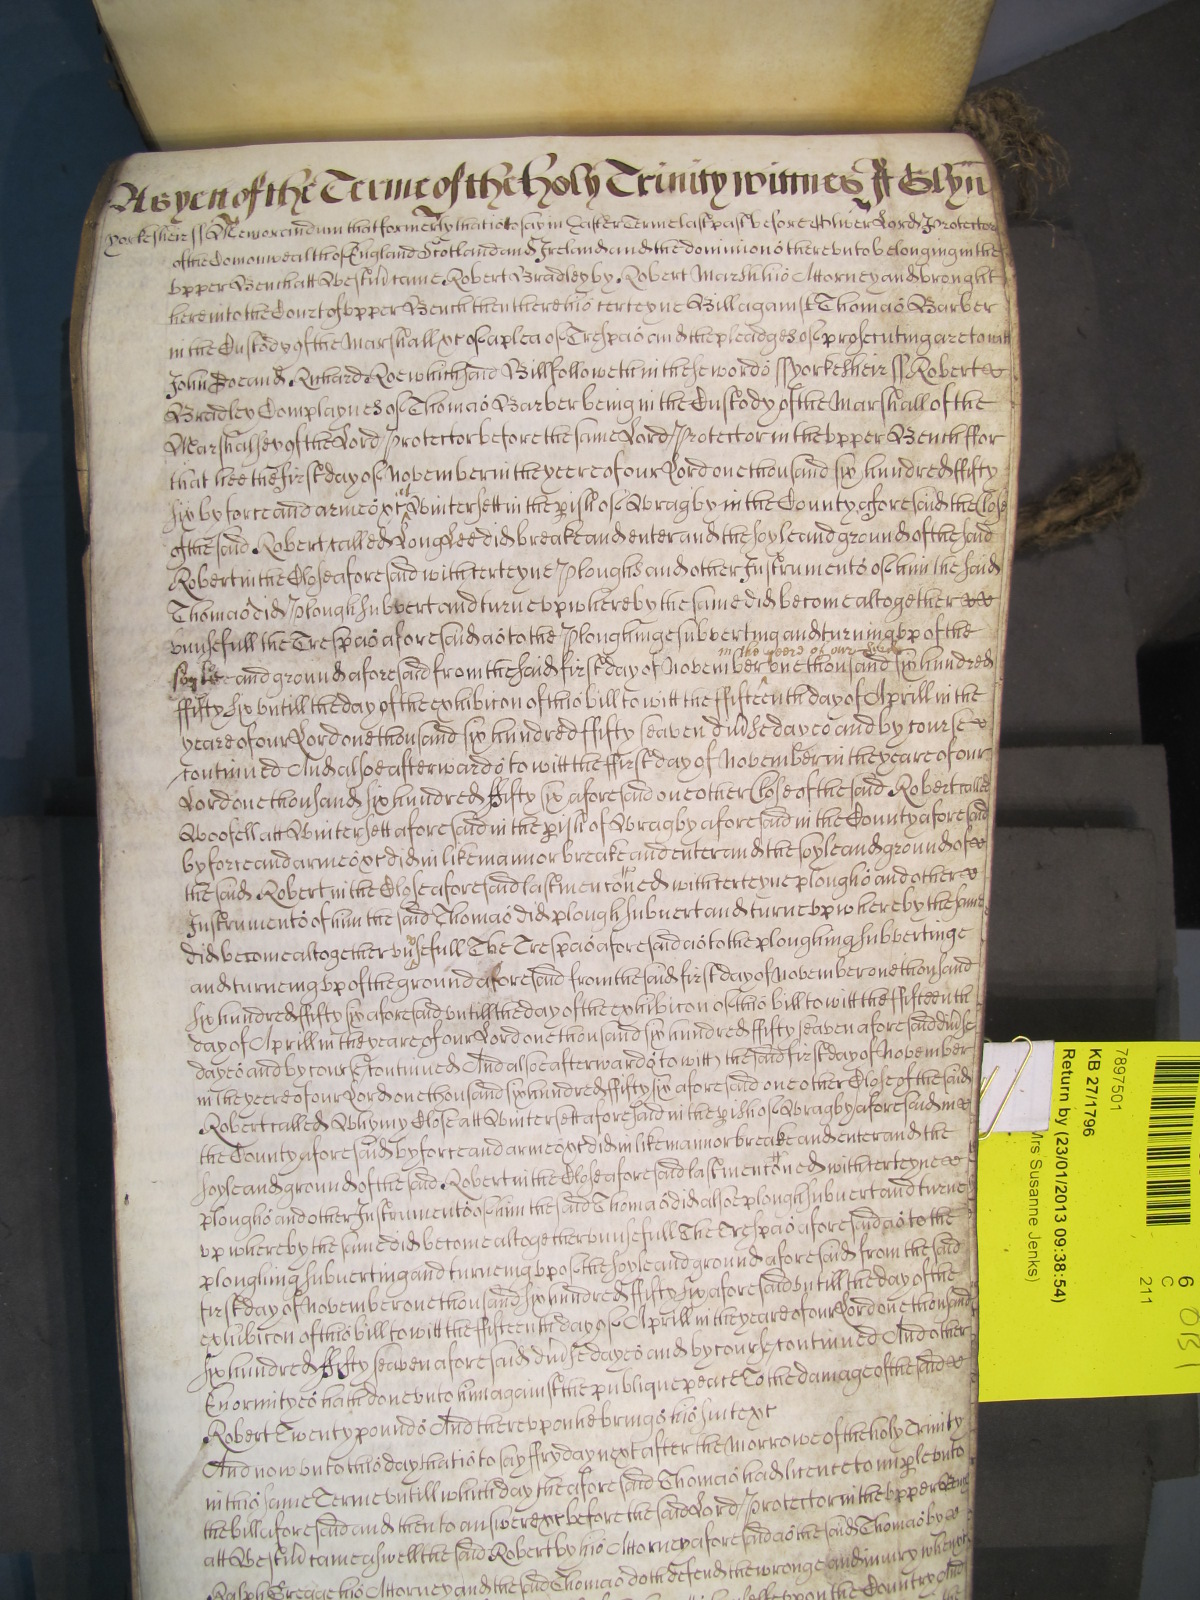 As yett of the Terme of the holy Trinity wittnes J Glyn
Yorkesheir ss Memorandum that formerly that is to say in Easter Terme last past before Oliver Lord Protector
of the Comonwealth of England Scotland and Ireland and the dominions thereunto belonging in the
upper Bench att Westm̃ came Robert Bradley by Robert Marsh his Attorney and brought
here into the Court of upper Bench then there his certeyne Bill against Thomas Barber
in the Custody of the Marshall xc of a plea of Trespas and the pleadges of prosecuting are to witt
John Doe and Richard Roe which said Bill followeth in these words ss Yorkesheir ss Robert
Bradley Complaynes of Thomas Barber being in the Custody of the Marshall of the
Marshalsey of the Lord Protector before the same Lord Protector in the upper Bench ffor
that hee the first day of November in the yeere of our Lord one thousand six hundred ffifty
six by force and armes xc att Wintersett in the pish of Wragby in the County aforesaid the Close
of the said Robert called Long Lee did breake and enter and the soyle and ground of the said
Robert in the Close aforesaid with certeyne Ploughs and other Instruments of him the said
Thomas did Plough subvert and turne up whereby the same did become altogether
unusefull the Trespas aforesaid as to the Ploughinge subverting and turning up of the
in the yeere of our Lord
soyle and ground aforesaid from the said first day of November one thousand six hundred
ffifty six untill the day of the exhibicon of this bill to witt the fifteenth day of Aprill in the
yeare of our Lord one thousand six hundred ffifty seaven diverse dayes and by course
continued And alsoe afterwards to witt the ffirst day of November in the yeare of our
Lord one thousand six hundred ffifty six aforesaid one other Close of the said Robert called
Woofell att Wintersett aforesaid in the pish of Wragby aforesaid in the County aforesaid
by force and armes xc did in like mannor breake and enter and the soyle and ground of
the said Robert in the Close aforesaid last mentconed with certeyne ploughs and other
Instruments of him the said Thomas did plough subvert and turne up whereby the same
did become altogether unusefull The Trespas aforesaid as to the ploughing subvertinge
and turneing up of the ground aforesaid from the said first day of November one thousand
six hundred ffifty six aforesaid untill the day of the exhibicon of this bill to witt the fifteenth
day of Aprill in the yeare of our Lord one thousand six hundred ffifty seaven aforesaid diverse
dayes and by course continued And alsoe afterwards to witt the said first day of November
in the yeere of our Lord one thousand six hundred ffifty six aforesaid one other Close of the said
Robert called Whyny Close att Wintersett aforesaid in the pish of Wragby aforesaid in
the County aforesaid by force and armes xc did in like mannor breake and enter and the
soyle and ground of the said Robert in the Close aforesaid last mentconed with certeyne
ploughs and other Instruments of him the said Thomas did alsoe plough subvert and turne
up whereby the same did become altogether unusefull The Trespas aforesaid as to the
ploughing subverting and turneing up of the soyle and ground aforesaid from the said
first day of November one thousand six hundred ffifty six aforesaid untill the day of the
exhibicon of this bill to witt the fifteenth day of Aprill in the yeare of our Lord one thousand
six hundred ffifty seaven aforesaid diverse dayes and by course continued And other
Enormityes hath done unto him against the publique peace To the damage of the said
Robert Twenty pounds And thereupon he brings his suite xc
And now unto this day that is to say ffryday next after the Morrowe of the holy Trinity
in this same Terme untill which day the aforesaid Thomas had licence to imple unto
the bill aforesaid and then to answere xc before the said Lord Protector in the upper Bench
att Westm̃ came aswell the said Robert by his Attorney aforesaid as the said Thomas by
Ralph Gregge his Attorney and the said Thomas doth defend the wronge and iniury when xc
himselfe upon the Country And
7897501
KB 27/1796
Return by (23/01/2013 09:38:54)
Mrs Susanne Jenks)
6
C
211